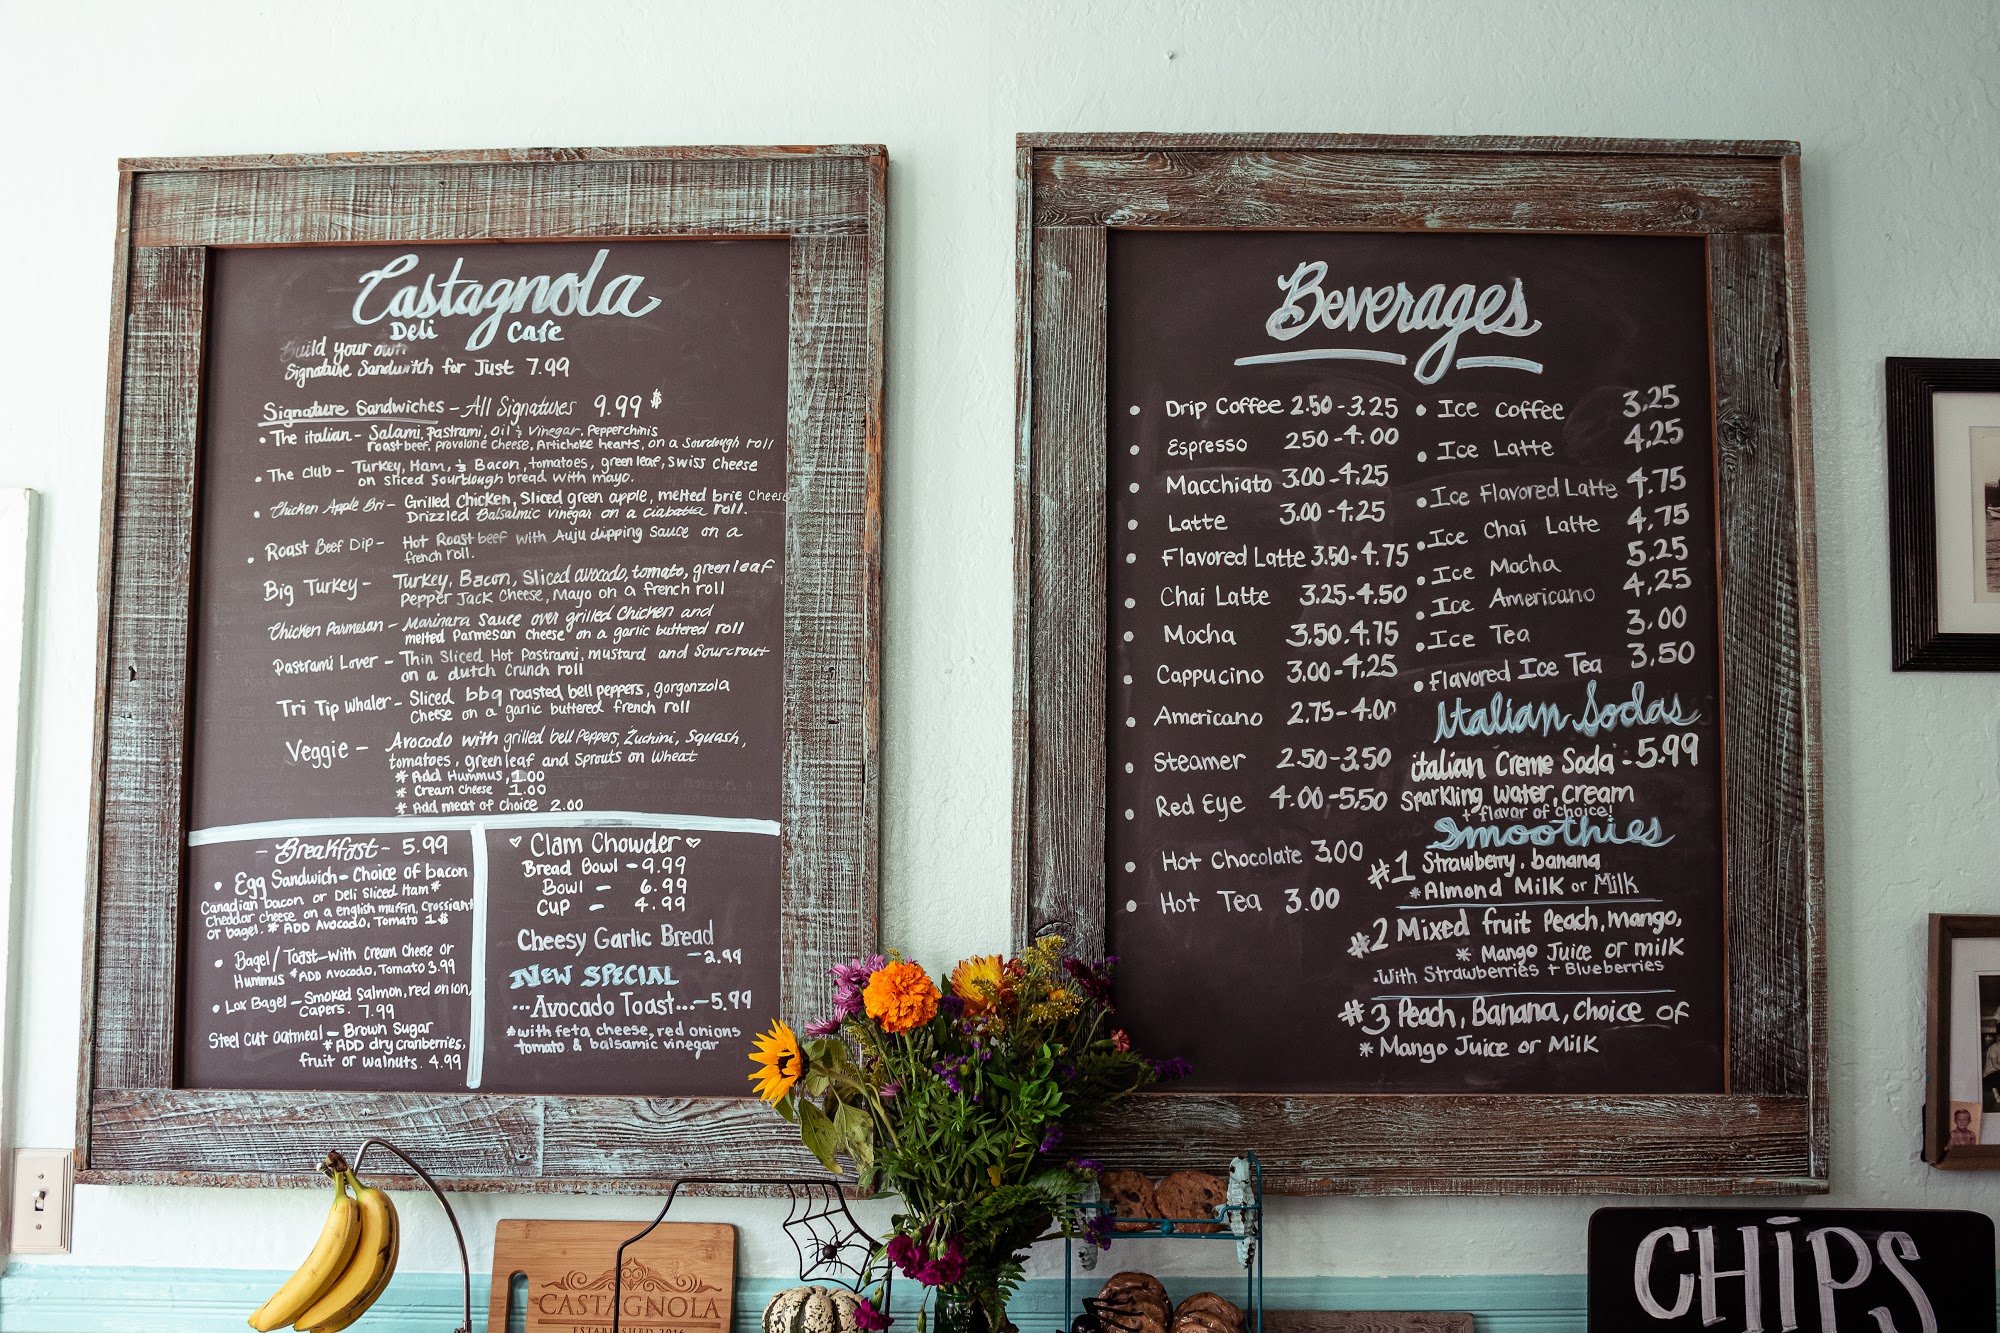 Castagnola
Deli Cafe
Build your own
Signature Sandwitch for Just 7.99
Signature Sandwiches - All Signatures 9.99 $
• The italian - Salami, Pastrami, Oil & Vinegar, Pepperchinis
roast beef, provolone cheese, Artichoke hearts, on a Sourdough roll
• The Club - Turkey, Ham, & Bacon, tomatoes, green leaf, Swiss cheese
on sliced sourdough bread with mayo.
• Chicken Apple Bri - Grilled Chicken, Sliced green apple, melted brie cheese
Drizzled Balsalmic vinegar on a ciabatta roll.
• Roast Beef Dip - Hot Roast beef with Auju dipping sauce on a
french roll.
Big Turkey - Turkey, Bacon, Sliced avocado, tomato, green leaf
Pepper Jack Cheese, Mayo on a french roll
Chicken Parmesan - Marinara Sauce over grilled Chicken and
melted Parmesan cheese on a garlic buttered roll
Pastrami Lover - Thin Sliced Hot Pastrami, mustard and Sourcrout
on a dutch Crunch roll
Tri Tip Whaler - Sliced bbq roasted bell peppers, gorgonzola
Cheese on a garlic buttered french roll
Veggie - Avocodo with grilled bell Peppers, Zuchini, Squash,
tomatoes, green leaf and Sprouts on Wheat
* Add Hummus, 1.00
* Cream cheese 1.00
* Add meat of choice 2.00
- Breakfast - 5.99
• Egg Sandwich - Choice of bacon
Canadian bacon or Deli Sliced Ham *
Cheddar cheese on a english muffin, Crossiant
or bagel. * ADD Avocado, Tomato 1$
• Bagel/Toast - with Cream Cheese or
Hummus * ADD Avocado, Tomato 3.99
• Lox Bagel - Smoked Salmon, red onion,
Capers. 7.99
Steel Cut oatmeal - Brown Sugar
* ADD dry cranberries,
fruit or walnuts. 4.99
♡ Clam Chowder ♡
Bread Bowl - 9.99
Bowl - 6.99
Cup - 4.99
Cheesy Garlic Bread
- 2.99
NEW SPECIAL
... Avocado Toast... - 5.99
* with feta cheese, red onions
tomato & balsamic vinegar
Beverages
• Drip Coffee 2.50 - 3.25
• Espresso 250 - 4.00
• Macchiato 3.00 - 4.25
• Latte 3.00 - 4.25
• Flavored Latte 3.50 - 4.75
• Chai Latte 3.25 - 4.50
• Mocha 3.50 - 4.75
• Cappucino 3.00 - 4.25
• Americano 2.75 - 4.00
• Steamer 2.50 - 3.50
• Red Eye 4.00 - 5.50
• Hot Chocolate 3.00
• Hot Tea 3.00
• Ice Coffee 3.25
• Ice Latte 4.25
• Ice Flavored Latte 4.75
• Ice Chai Latte 4.75
• Ice Mocha 5.25
• Ice Americano 4.25
• Ice Tea 3.00
• Flavored Ice Tea 3.50
Italian Sodas
italian Creme Soda - 5.99
Sparkling water, cream
+ flavor of choice!
Smoothies
#1 Strawberry, banana
* Almond Milk or Milk
#2 Mixed fruit Peach, mango,
* Mango Juice or milk
- With Strawberries + Blueberries
#3 Peach, Banana, choice of
* Mango Juice or Milk
CASTAGNOLA
ESTABLISHED 2016
CHIPS